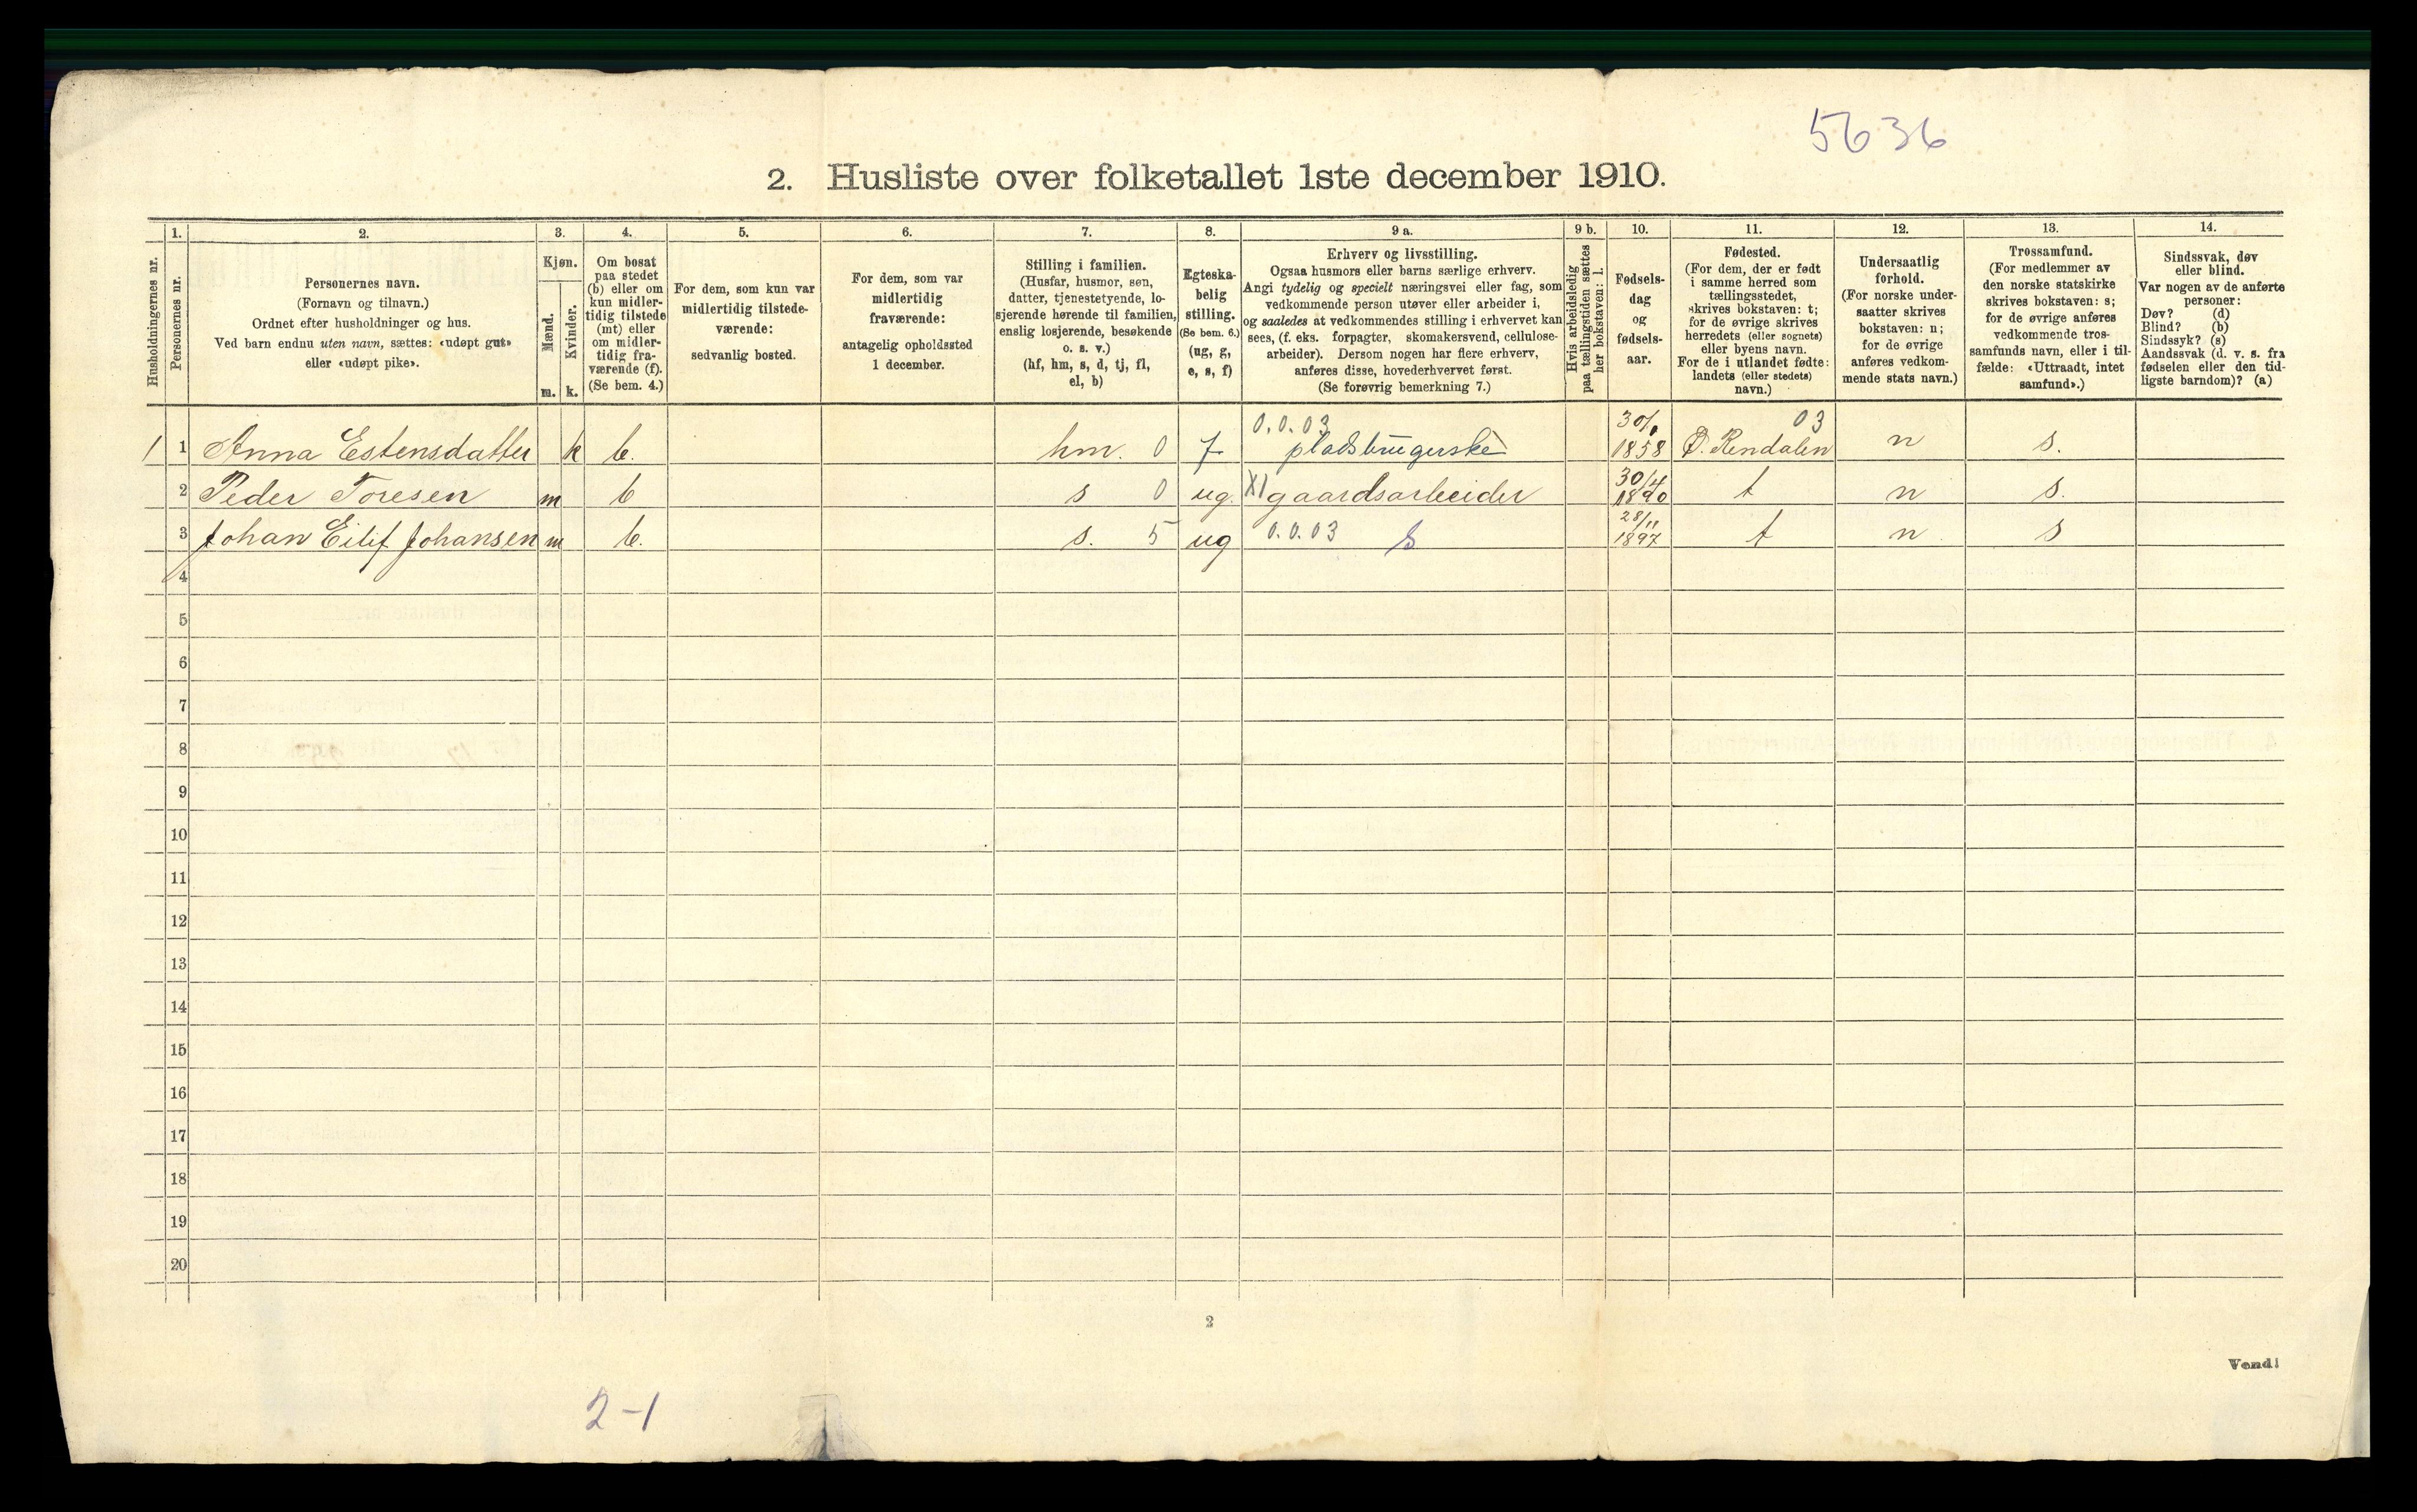 5636
2. Husliste over folketallet 1ste december 1910.
Husholdningernes nr.
1.
Personernes nr.
2.
Personernes navn.
(Fornavn og tilnavn.)
Ordnet efter husholdninger og hus.
Ved barn endnu uten navn, sættes: «udøpt gut»
eller «udøpt pike».
3.
Kjøn.
Mænd.
Kvinder.
m. k.
4.
Om bosat
paa stedet
(b) eller om
kun midler-
tidig tilstede
(mt) eller
om midler-
tidig fra-
værende (f).
(Se bem. 4.)
5.
For dem, som kun var
midlertidig tilstede-
værende:
sedvanlig bosted.
6.
For dem, som var
midlertidig
fraværende:
antagelig opholdssted
1 december.
7.
Stilling i familien.
(Husfar, husmor, søn,
datter, tjenestetyende, lo-
sjerende hørende til familien,
enslig losjerende, besøkende
o. s. v.)
(hf, hm, s, d, tj, fl,
el, b)
8.
Egteska-
belig
stilling.
(Se bem. 6.)
(ug, g,
e, s, f)
9 a.
Erhverv og livsstilling.
Ogsaa husmors eller barns særlige erhverv.
Angi tydelig og specielt næringsvei eller fag, som
vedkommende person utøver eller arbeider i,
og saaledes at vedkommendes stilling i erhvervet kan
sees, (f. eks. forpagter, skomakersvend, cellulose-
arbeider). Dersom nogen har flere erhverv,
anføres disse, hovederhvervet først.
(Se forøvrig bemerkning 7.)
9 b.
Hvis arbeidsledig
paa tællingstiden sættes
her bokstaven: l.
10.
Fødsels-
dag
og
fødsels-
aar.
11.
Fødested.
(For dem, der er født
i samme herred som
tællingsstedet,
skrives bokstaven: t;
for de øvrige skrives
herredets (eller sognets)
eller byens navn.
For de i utlandet fødte:
landets (eller stedets)
navn.)
12.
Undersaatlig
forhold.
(For norske under-
saatter skrives
bokstaven: n;
for de øvrige
anføres vedkom-
mende stats navn.)
13.
Trossamfund.
(For medlemmer av
den norske statskirke
skrives bokstaven: s;
for de øvrige anføres
vedkommende tros-
samfunds navn, eller i til-
fælde: «Uttraadt, intet
samfund».)
14.
Sindssvak, døv
eller blind.
Var nogen av de anførte
personer:
Døv? (d)
Blind? (b)
Sindssyk? (s)
Aandssvak (d. v. s. fra
fødselen eller den tid-
ligste barndom)? (a)
0.0.03 03
1 1 Anna Estensdatter k b. hm. 0 f pladsbrugerske 1858 Ø. Rendalen n s.
2 Peder Toresen m b s 0 ug. XI gaardsarbeider 30/4 1890 t n s.
3 Johan Eilif Johansen m b. s. 5 ug 0.0.03 S 28/11 1897 t n s
4
5
6
7
8
9
10
11
12
13
14
15
16
17
18
19
20
2
Vend!
2-1